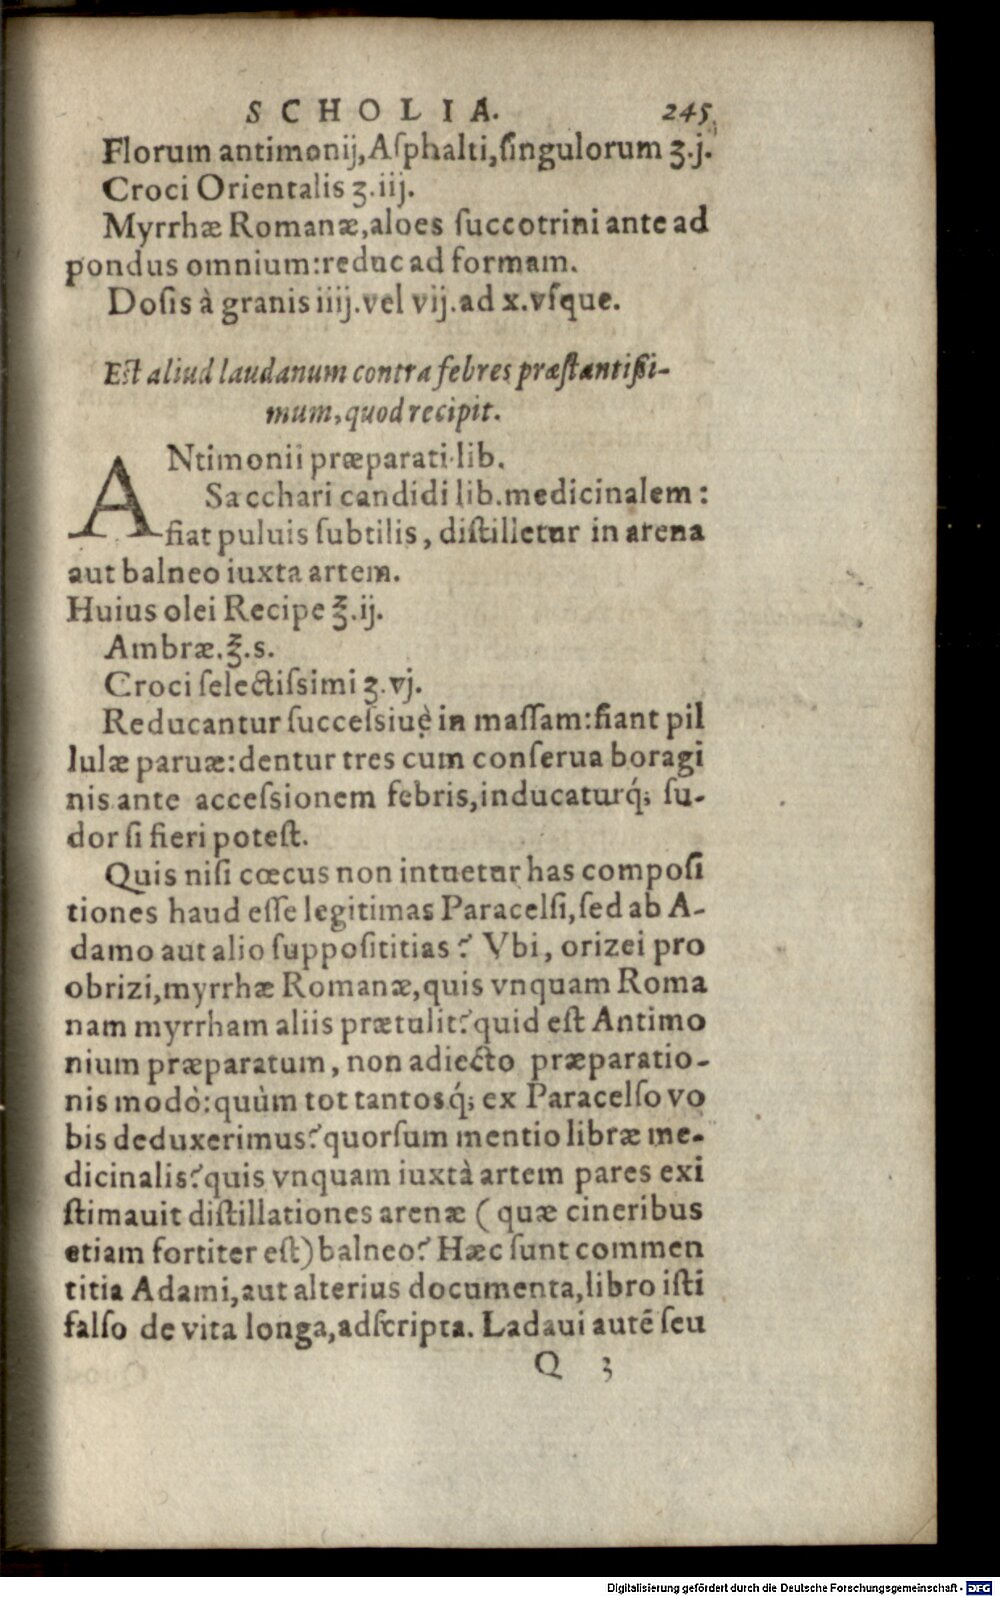 SCHOLIA. 245
Florum antimonij,Aſphalti,ſingulorum ʒ.j.
Croci Orientalis ʒ.iij.
Myrrhæ Romanæ,aloes ſuccotrini ante ad
pondus omnium:reduc ad formam.
Doſis à granis iiij.vel vij.ad x.vſque.
Eſt aliud laudanum contra febres præſtantißi-
mum,quod recipit.
ANtimonii præparati lib.
Sacchari candidi lib.medicinalem:
fiat puluis ſubtilis, diſtilletur in arena
aut balneo iuxta artem.
Huius olei Recipe ℥.ij.
Ambræ.℥.s.
Croci ſelectiſsimi ʒ.vj.
Reducantur ſucceſsiuè in maſſam:fiant pil
lulæ paruæ:dentur tres cum conſerua boragi
nis ante acceſsionem febris,inducaturq́; ſu-
dor ſi fieri poteſt.
Quis niſi cœcus non intuetur has compoſi
tiones haud eſſe legitimas Paracelſi,ſed ab A-
damo aut alio ſuppoſititias? Vbi, orizei pro
obrizi,myrrhæ Romanæ,quis vnquam Roma
nam myrrham aliis prætulit?quid eſt Antimo
nium præparatum, non adiecto præparatio-
nis modò:quùm tot tantosq́; ex Paracelſo vo
bis deduxerimus?quorſum mentio libræ me-
dicinalis?quis vnquam iuxtà artem pares exi
ſtimauit diſtillationes arenæ (quæ cineribus
etiam fortiter eſt)balneo? Hæc ſunt commen
titia Adami,aut alterius documenta,libro iſti
falſo de vita longa,adſcripta. Ladaui autē ſeu
Q 3
Digitalisierung gefördert durch die Deutsche Forschungsgemeinschaft - DFG